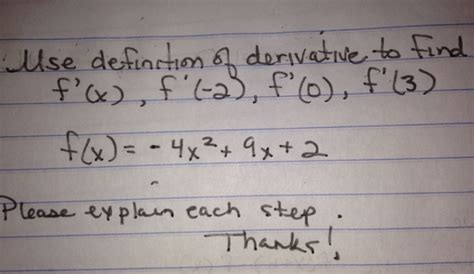 Use definition of derivative to find
f'(x), f'(-2), f'(0), f'(3)
f(x) = - 4x² + 9x + 2
Please explain each step.
Thanks!